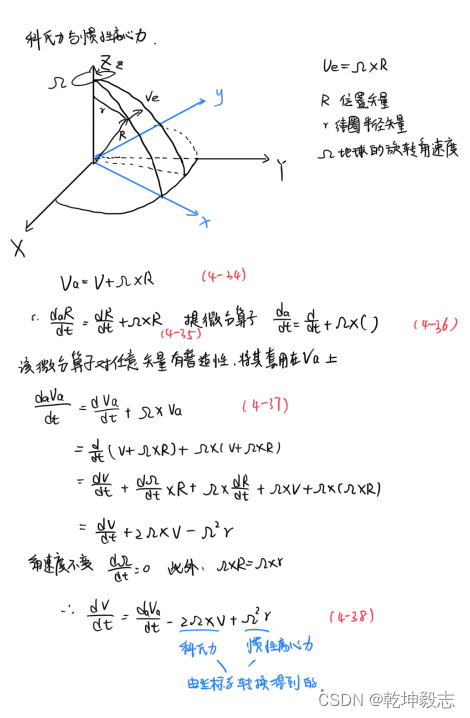 科氏力与惯性离心力.
Z z
Ω
r
Ve
R
y
Y
x
X
Ve=Ω×R
R 位置矢量
r 纬圈半径矢量
Ω 地球的旋转角速度
Va=V+Ω×R (4-34)
∵ daR/dt = dR/dt + Ω×R (4-35) 提微分算子 da/dt = d/dt + Ω×( ) (4-36)
该微分算子对任意矢量有普适性,将其套用在Va上
daVa/dt = dVa/dt + Ω×Va (4-37)
= d/dt (V+Ω×R) + Ω×(V+Ω×R)
= dV/dt + dΩ/dt ×R + Ω× dR/dt + Ω×V + Ω×(Ω×R)
= dV/dt + 2Ω×V - Ω²r
角速度不变 dΩ/dt =0 此外, Ω×R=Ω×r
∴ dV/dt = daVa/dt - 2Ω×V + Ω²r (4-38)
科氏力 惯性离心力
由坐标系转换得到的.
CSDN @乾坤毅志